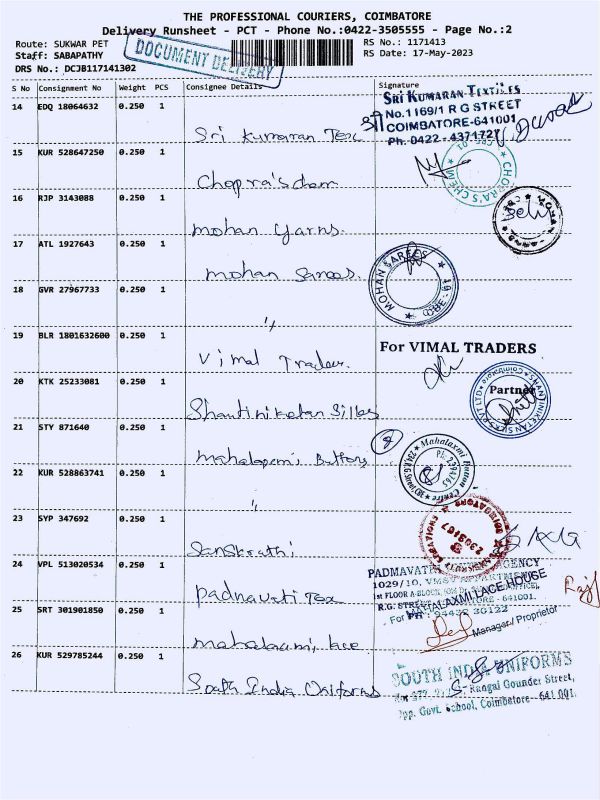 THE PROFESSIONAL COURIERS, COIMBATORE
Delivery Runsheet - PCT - Phone No.:0422-3505555 - Page No.:2
Route: SUKWAR PET
RS No.: 1171413
Staff: SABAPATHY
DOCUMENT DELIVERY
RS Date: 17-May-2023
DRS No.: DCJB117141302
S No Consignment No Weight PCS Consignee Details Signature
14 EDQ 18064632 0.250 1
Sri Kumaran Tex
SRI KUMARAN TEXTILES
No.1169/1 R G STREET
COIMBATORE-641001
Ph. 0422 - 4371727
15 KUR 528647250 0.250 1
Chopra's chem
CHOPRA'S CHEM
16 RJP 3143088 0.250 1
mohan yarns.
17 ATL 1927643 0.250 1
mohan sarees.
MOHAN SAREES
CBE - 1
18 GVR 27967733 0.250 1
"
19 BLR 1801632600 0.250 1
Vimal Traders
For VIMAL TRADERS
Partner
20 KTK 25233081 0.250 1
Shantiniketan Silks
SHANTINIKETAN SILKS PVT LTD
Coimbatore
21 STY 871640 0.250 1
mahalaxmi Buttons
Mahalaxmi Button Centre
22 KUR 528863741 0.250 1
"
23 SYP 347692 0.250 1
Sanskrathi
24 VPL 513020534 0.250 1
Padmavati Tex
PADMAVATHI AGENCY
1029/10,
R.G. STREET
COIMBATORE - 641001.
25 SRT 301901850 0.250 1
mahalaxmi lace
For MAHALAXMI LACE HOUSE
Manager / Proprietor
26 KUR 529785244 0.250 1
South India Uniforms
SOUTH INDIA UNIFORMS
Rangai Gounder Street,
Opp. Govt. School, Coimbatore - 641 001.